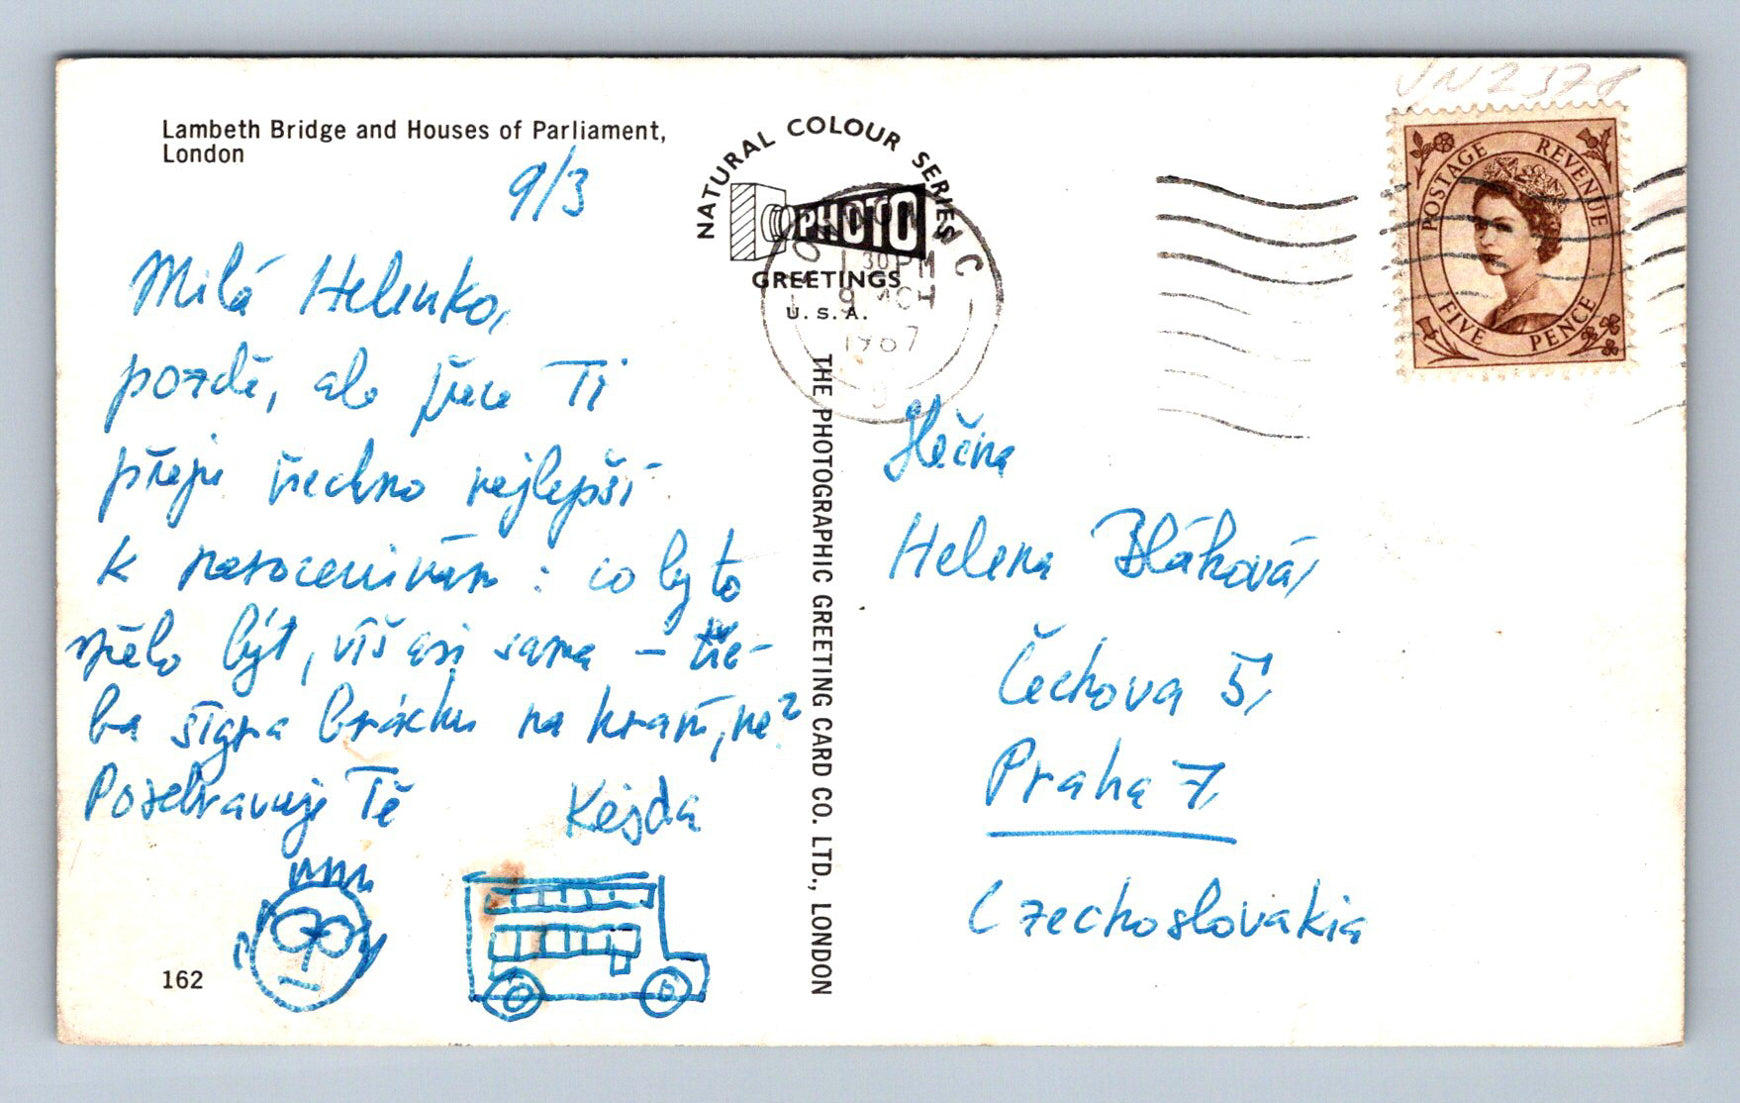 Lambeth Bridge and Houses of Parliament,
London
9/3
Milá Helenko,
pozdě, ale přece Ti
přeju všechno nejlepší
k narozeninám : co by to
mělo být, víš asi sama – tře-
ba šígra bráchu na hraní, ne?
Pozdravuje Tě Kejda
162
NATURAL COLOUR SERIES
PHOTO
GREETINGS
U.S.A.
THE PHOTOGRAPHIC GREETING CARD CO. LTD., LONDON
1 30 PM
9 MCH
1967
VN2378
POSTAGE REVENUE
FIVE PENCE
Slečna
Helena Bláhová,
Čechova 5,
Praha 7,
Czechoslovakia